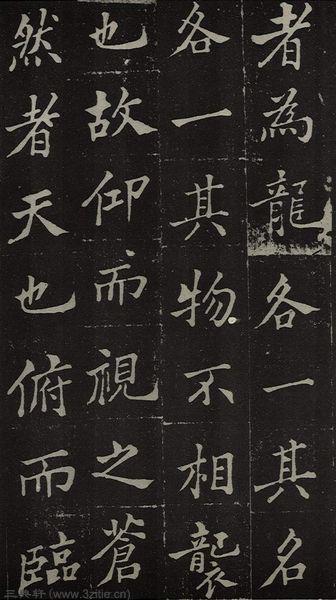 者為龍各一其名
各一其物不相襲
也故仰而視之蒼
然者天也俯而臨
三典轩 (www.3zitie.cn)